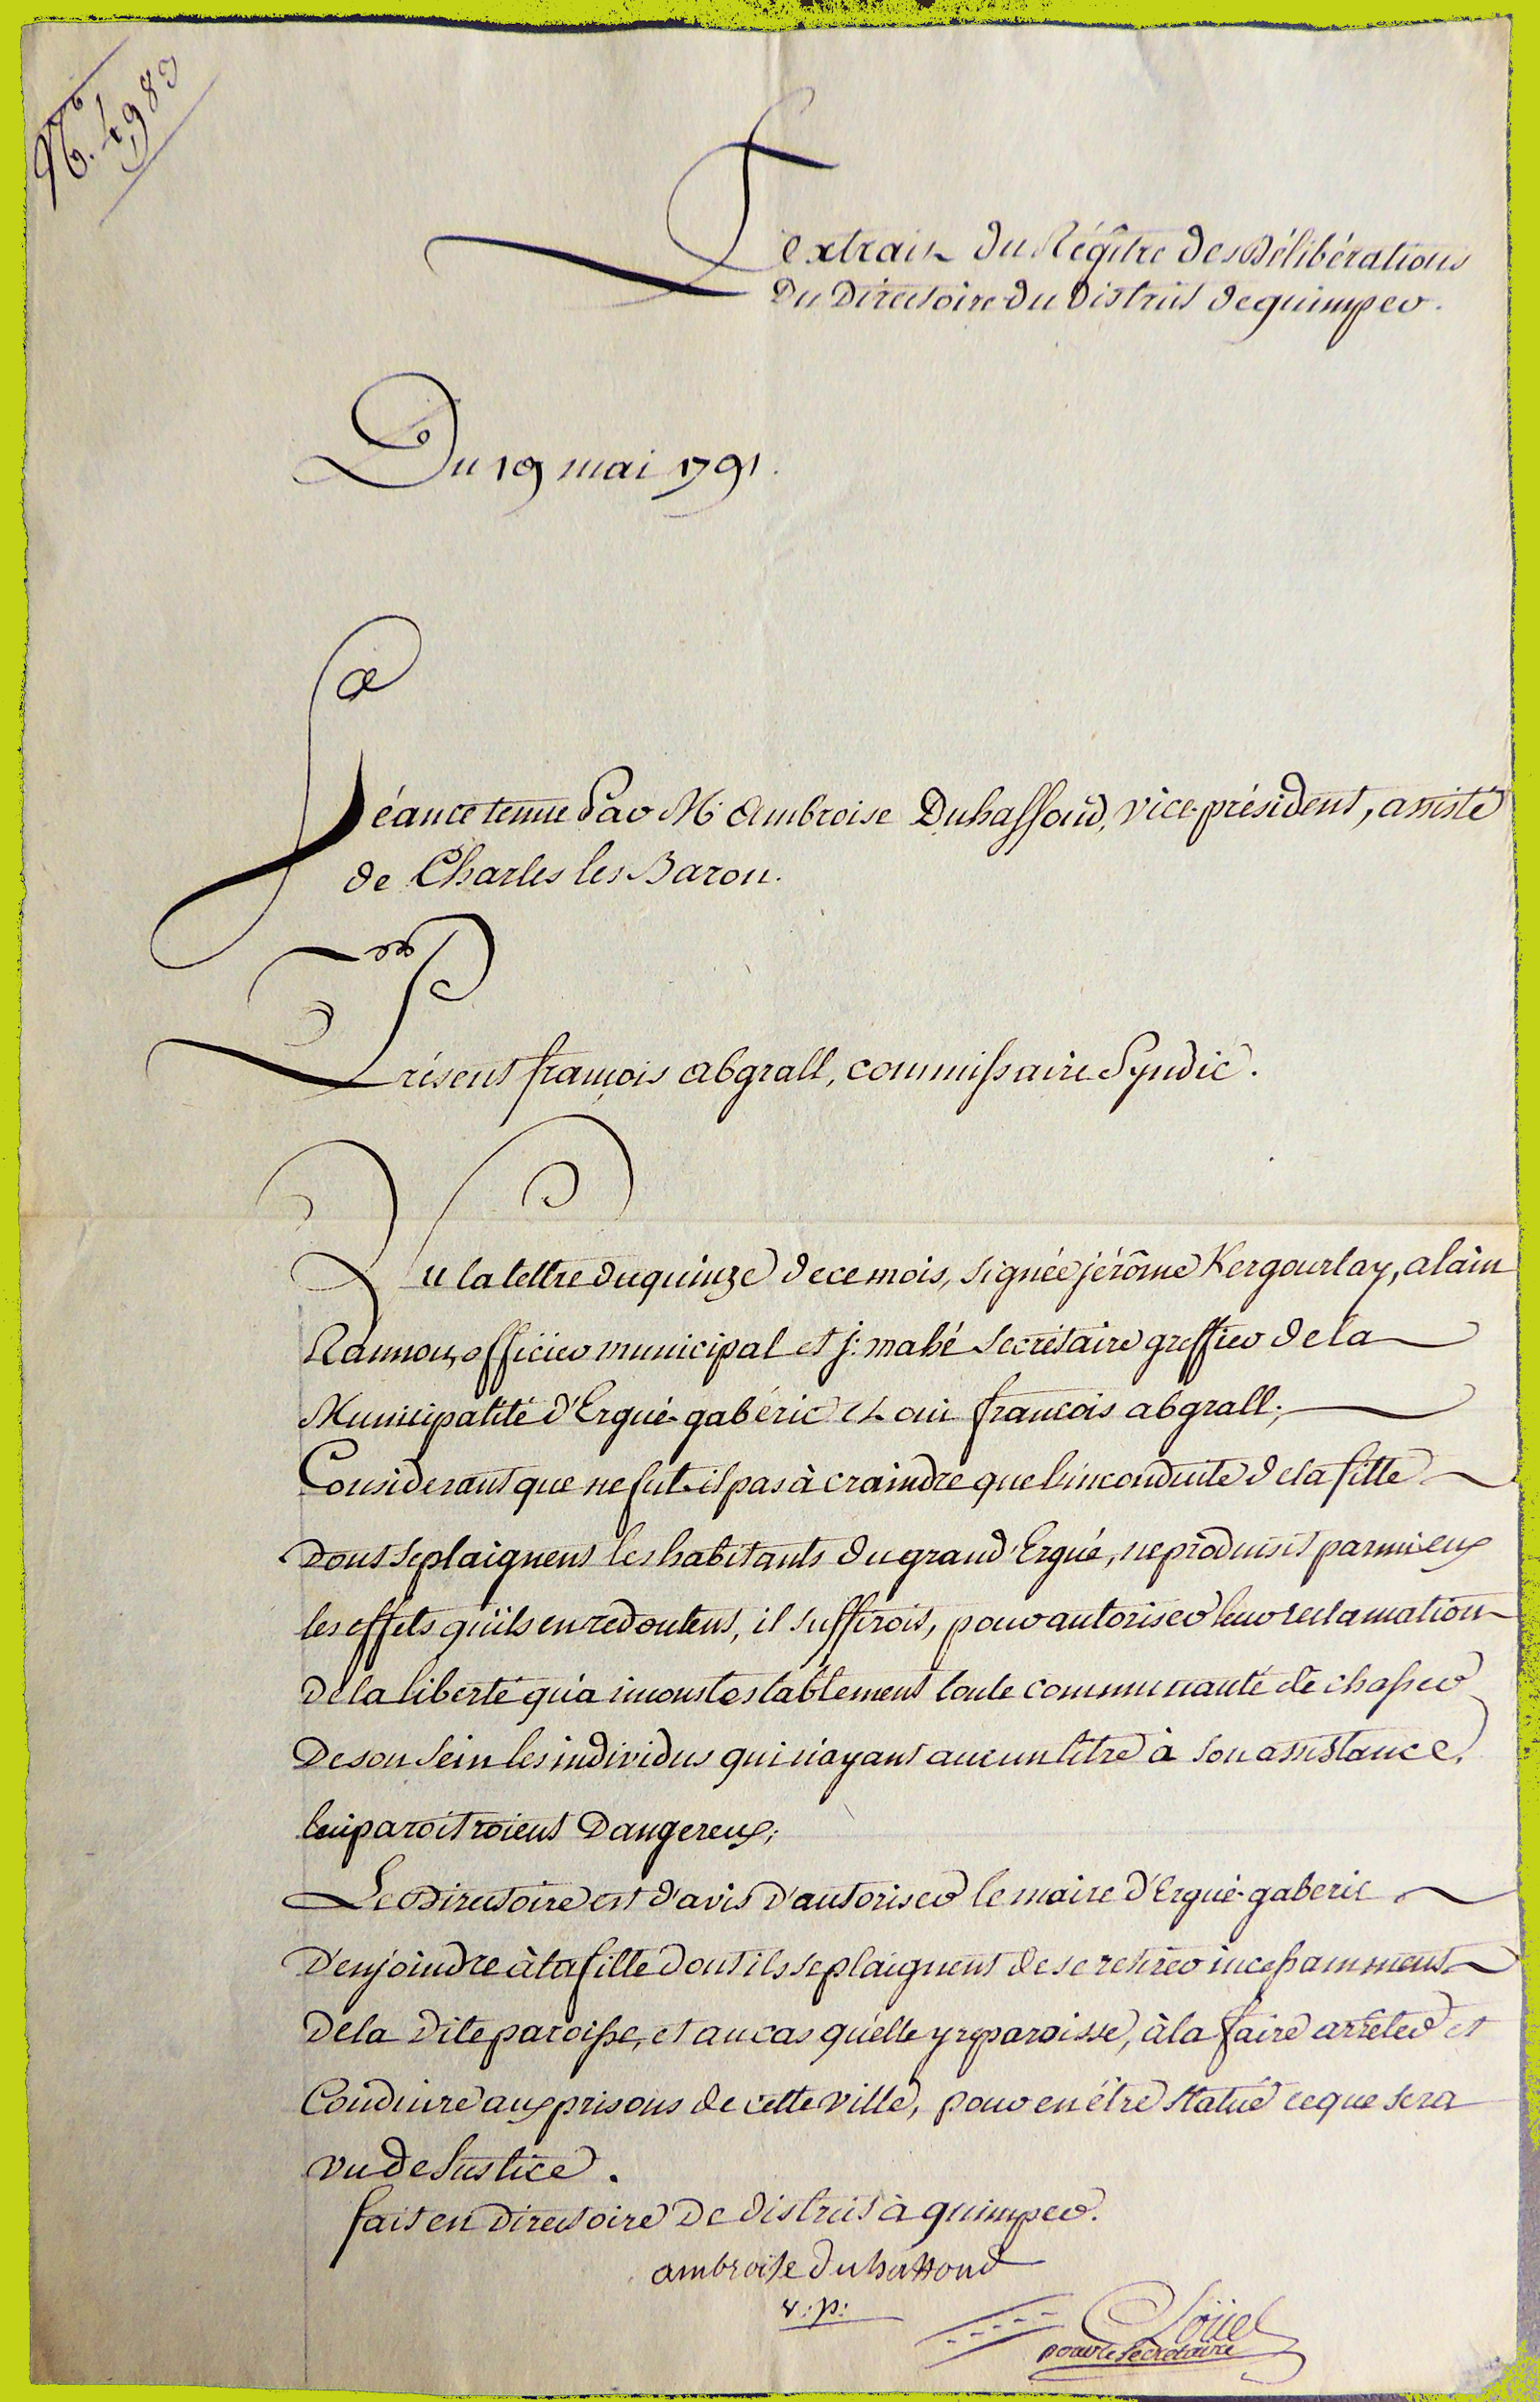 N.° 4983
Extrait du Régître des Délibérations
Du Directoire du District de quimper.
Du 19 mai 1791.
Séance tenue Par M. Ambroise Duhaffond, vice-président, assisté
de Charles les Baron.
Présent françois abgrall, commissaire Syndic.
Vu la lettre du quinze de ce mois, signée jérôme Kergourlay, alain
Rannou, officier municipal et j: mahé secrétaire greffier de la
Municipalité d'Ergué-gabéric et oui françois abgrall;
Considerant que ne fut-il pas à craindre que l'inconduite de la fille
Dont se plaignent les habitants du grand'Ergué, ne produisit parmi eux
les effets qu'ils en redoutent, il suffirois, pour autoriser leur reclamation
De la liberté qu'a incontestablement toute communauté de chasser
De son sein les individus qui n'ayant aucun titre à son assistance,
lui paroitroient Dangereux;
Le Directoire est d'avis D'autoriser le maire d'Ergué-gaberic
D'enjoindre à la fille dont ils se plaignent de se retirer incessamment
De la Dite paroisse, et au cas qu'elle y reparoisse, à la faire arrêter et
Conduire aux prisons de cette ville, pour en être statué ce que sera
vu de Justice.
fait en Directoire De district à quimper.
ambroise duhaffond
v: p:
pour le secretaire